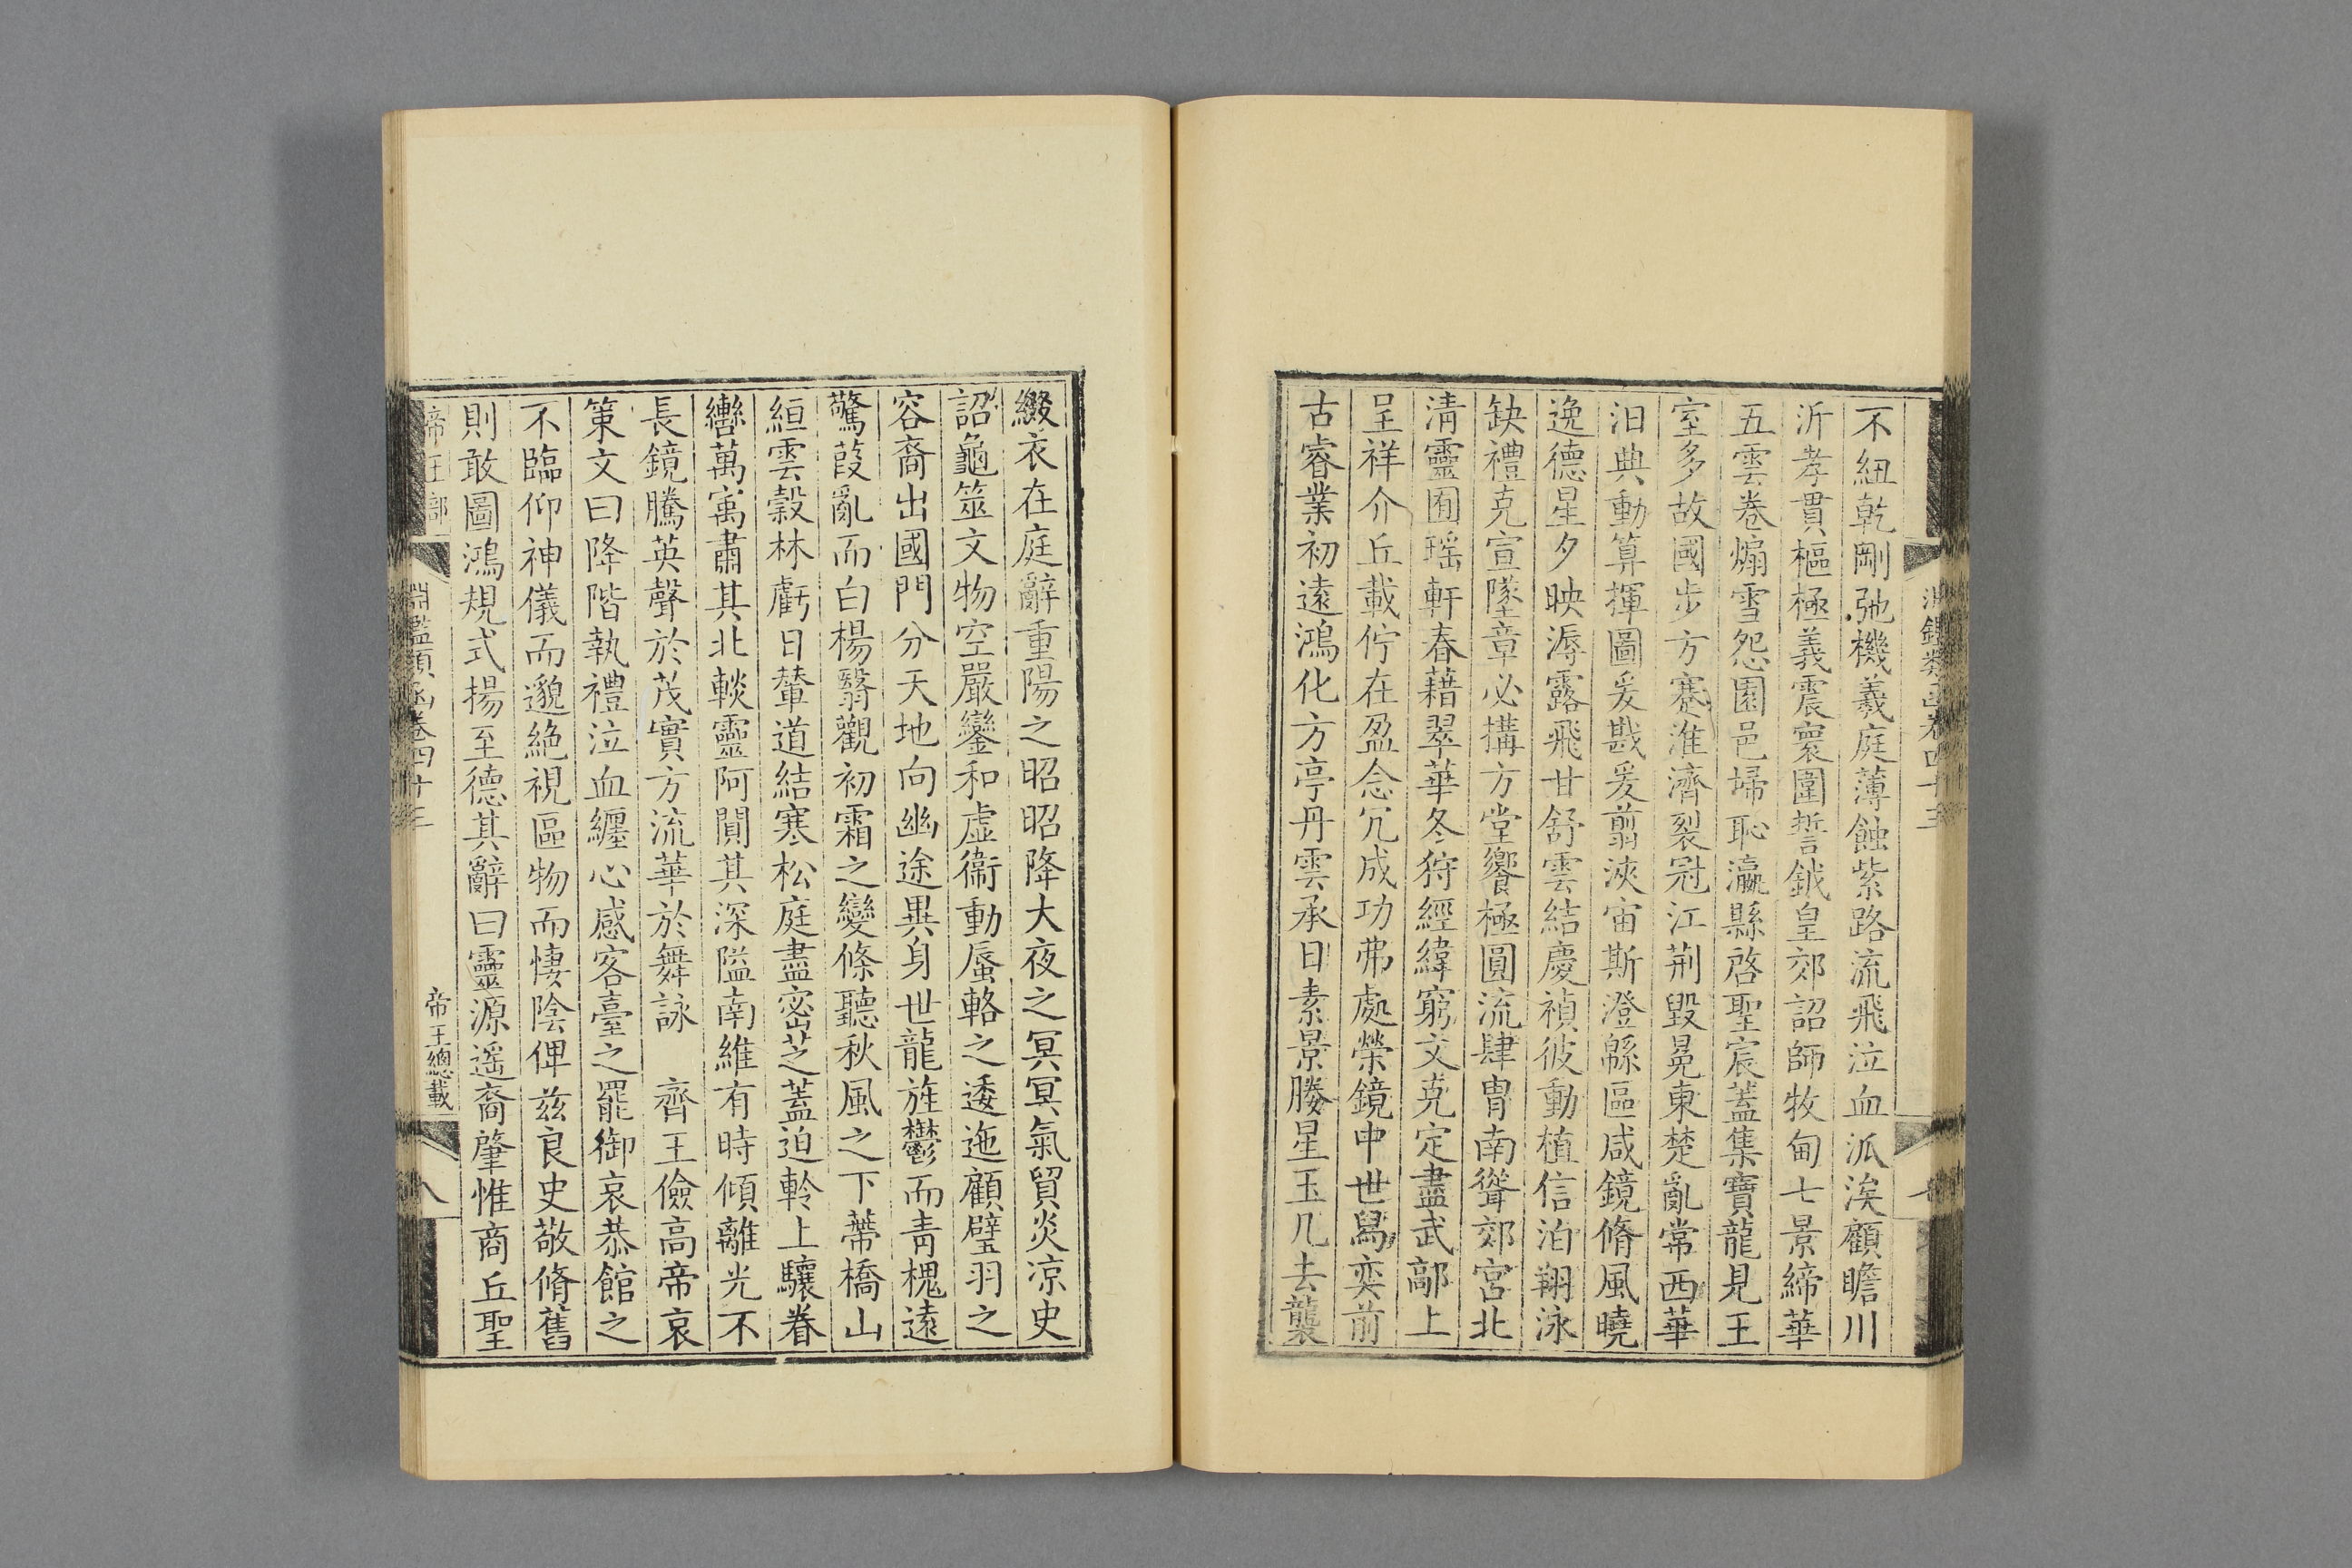 不紐乾剛弛機羲庭薄蝕紫路流飛泣血派涘顧瞻川
沂孝貫樞極義震寰圍誓鉞皇郊詔師牧甸七景締華
五雲卷煽雪怨園邑埽恥瀛縣啓聖宸蓋集寶龍見王
室多故國步方蹇淮濟裂冠江荆毀冕東楚亂常西華
汨典動算揮圖爰戡爰翦浹宙斯澄緜區咸鏡脩風曉
逸德星夕映溽露飛甘舒雲結慶禎彼動植信洎翔泳
缺禮克宣墜章必搆方堂饗極圓流肆胄南聳郊宮北
清靈囿瑤軒春藉翠華冬狩經緯窮文克定盡武鄗上
呈祥介丘載佇在盈念冗成功弗處榮鏡中世舄奕前
古睿業初遠鴻化方亭丹雲承日素景媵星玉几去襲
淵鑑類函卷四十三
綴衣在庭辭重陽之昭昭降大夜之冥冥氣貿炎凉史
詔龜筮文物空嚴鑾和虛衞動蜃輅之逶迤顧璧羽之
容裔出國門分天地向幽途異身世龍旌鬱而靑槐遠
驚葭亂而白楊翳觀初霜之變條聽秋風之下蔕橋山
絙雲穀林虧日輦道結寒松庭盡密芝蓋迫軨上驤眷
轡萬寓肅其北輚靈阿閴其深隘南維有時傾離光不
長鏡騰英聲於茂實方流華於舞詠　齊王儉高帝哀
策文曰降階執禮泣血纏心感客臺之罷御哀恭館之
不臨仰神儀而邈絶視區物而悽陰俾兹良史敬脩舊
則敢圖鴻規式揚至德其辭曰靈源遥裔肇惟商丘聖
帝王部
淵鑑類函卷四十三
帝王總載
八